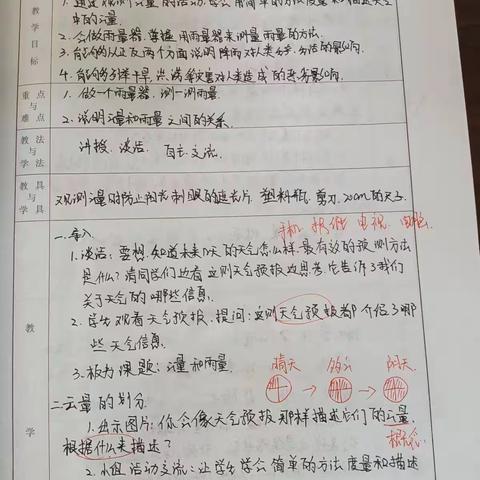 教学目标
1.通过观测云量的活动,学会用简单的方法度量和描述天空
中的云量.
2.会做雨量器,掌握用雨量器来测量雨量的方法.
3.能够从正反两个方面说明降雨对人类生产、生活的影响.
4.能够举干旱、洪涝灾害对人类造成的恶劣影响.
重点与难点
1.做一个雨量器,测一测雨量.
2.说明云量和雨量之间的关系.
教法与学法
讲授、谈话、自主、交流.
教具与学具
观测云量时防止阳光刺眼的遮光片,塑料瓶,剪刀,20cm的尺子.
一.导入
手机 报纸 电视 电脑
1.谈话:要想知道未来几天的天气怎么样,最有效的预测方法
是什么?请同学们边看这则天气预报边思考它告诉了我们
关于天气的哪些信息.
2.学生观看天气预报.提问:这则天气预报都介绍了哪
些天气信息.
3.板书课题:云量和雨量.
晴天 多云 阴天
教
学
二.云量的划分
1.出示图片:你会像天气预报那样描述它们的云量
根据什么来描述?
2.小组活动交流:让学生学会简单的方法度量和描述